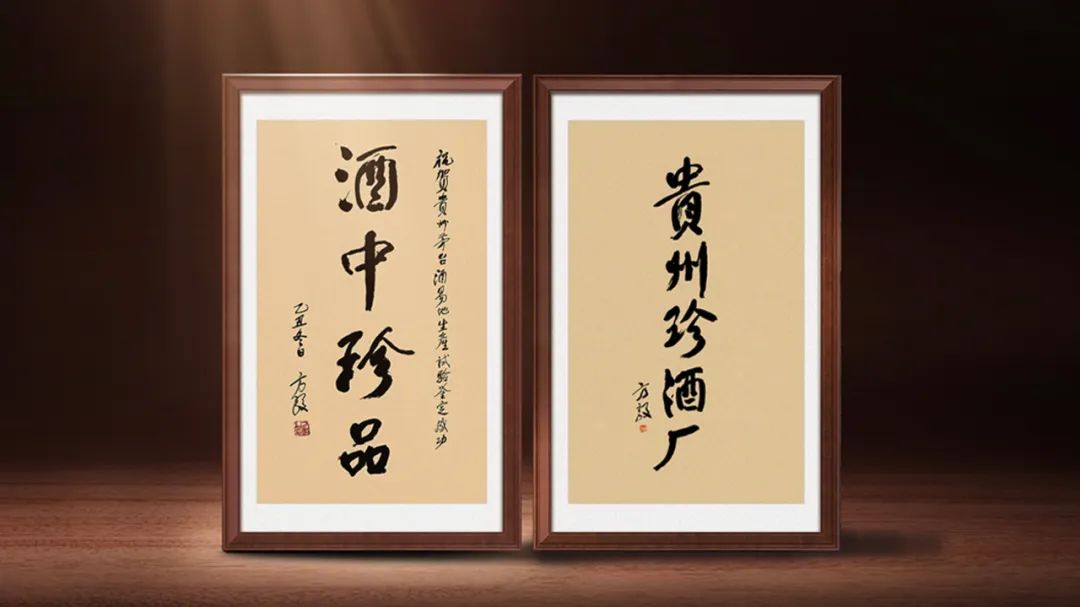 祝賀貴州茅台酒易地生產試验鉴定成功
酒中珍品
乙丑冬日 方毅
貴州珍酒厂
方毅